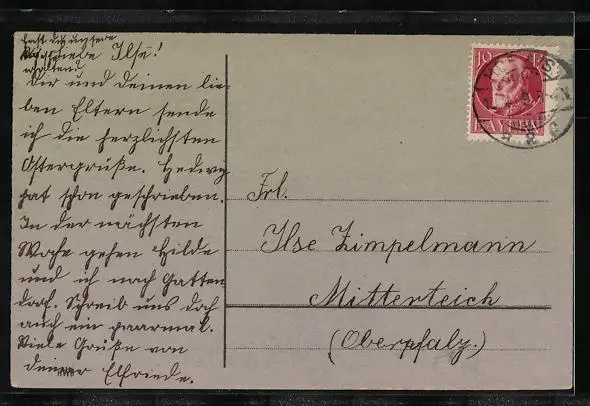 hast du unsere
Liebe Ilse!
erhalten?
Dir und deinen lie-
ben Eltern sende
ich die herzlichsten
Ostergrüße. Hedwig
hat schon geschrieben.
In der nächsten
Woche gehen Hilde
und ich nach Gatten-
dorf. Schreib uns doch
auch ein paarmal.
Viele Grüße von
deiner Elfriede.
10
BAYERN
Frl.
Ilse Zimpelmann
Mitterteich
(Oberpfalz.)